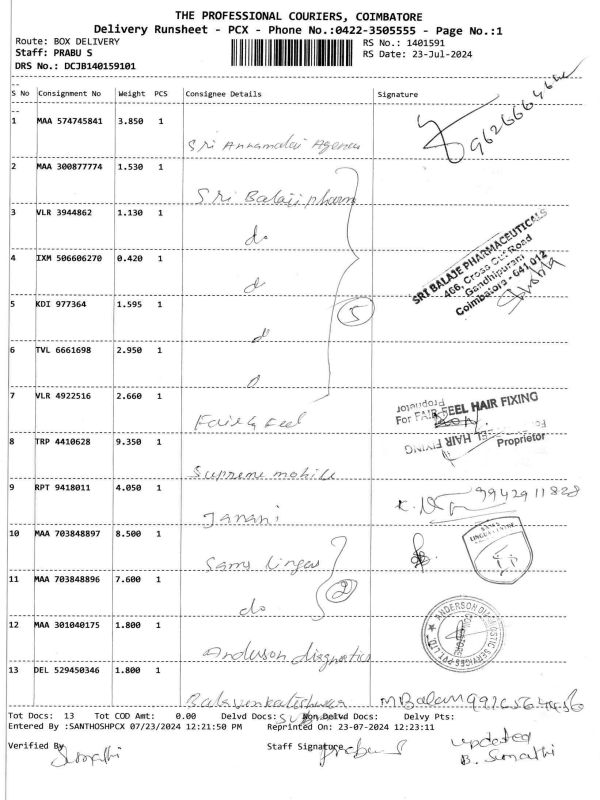 THE PROFESSIONAL COURIERS, COIMBATORE
Delivery Runsheet - PCX - Phone No.:0422-3505555 - Page No.:1
Route: BOX DELIVERY
RS No.: 1401591
Staff: PRABU S
RS Date: 23-Jul-2024
DRS No.: DCJB140159101
S No Consignment No Weight PCS Consignee Details Signature
1 MAA 574745841 3.850 1
Sri Annamalai Agencies
2 MAA 300877774 1.530 1
Sri Balaji pharma
3 VLR 3944862 1.130 1
do
4 IXM 506606270 0.420 1
SRI BALAJE PHARMACEUTICALS
466, Cross Cut Road
Gandhipuram
Coimbatore - 641 012
5 KDI 977364 1.595 1
5
6 TVL 6661698 2.950 1
7 VLR 4922516 2.660 1
Fair & Feel
For FAIR FEEL HAIR FIXING
Proprietor
8 TRP 4410628 9.350 1
FEEL HAIR FIXING
Proprietor
Supreme mobile
9 RPT 9418011 4.050 1
9942911828
Janani
10 MAA 703848897 8.500 1
Sams Lingas
11 MAA 703848896 7.600 1
2
do
12 MAA 301040175 1.800 1
ANDERSON DIAGNOSTIC SERVICES PVT LTD
Anderson diagnostics
13 DEL 529450346 1.800 1
Balavenkateshwara
M Balan
Tot Docs: 13 Tot COD Amt: 0.00 Delvd Docs: Non Delvd Docs: Delvy Pts:
Entered By :SANTHOSHPCX 07/23/2024 12:21:50 PM Reprinted On: 23-07-2024 12:23:11
Verified By Sumathi Staff Signature Prabu S
updated
B. Sumathi